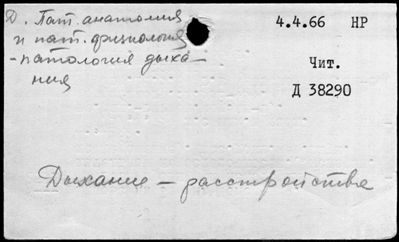 Д. Пат. анатомия
и пат. физиология
- патология дыха-
ния
4.4.66 НР
Чит.
Д 38290
Дыхание – расстройства